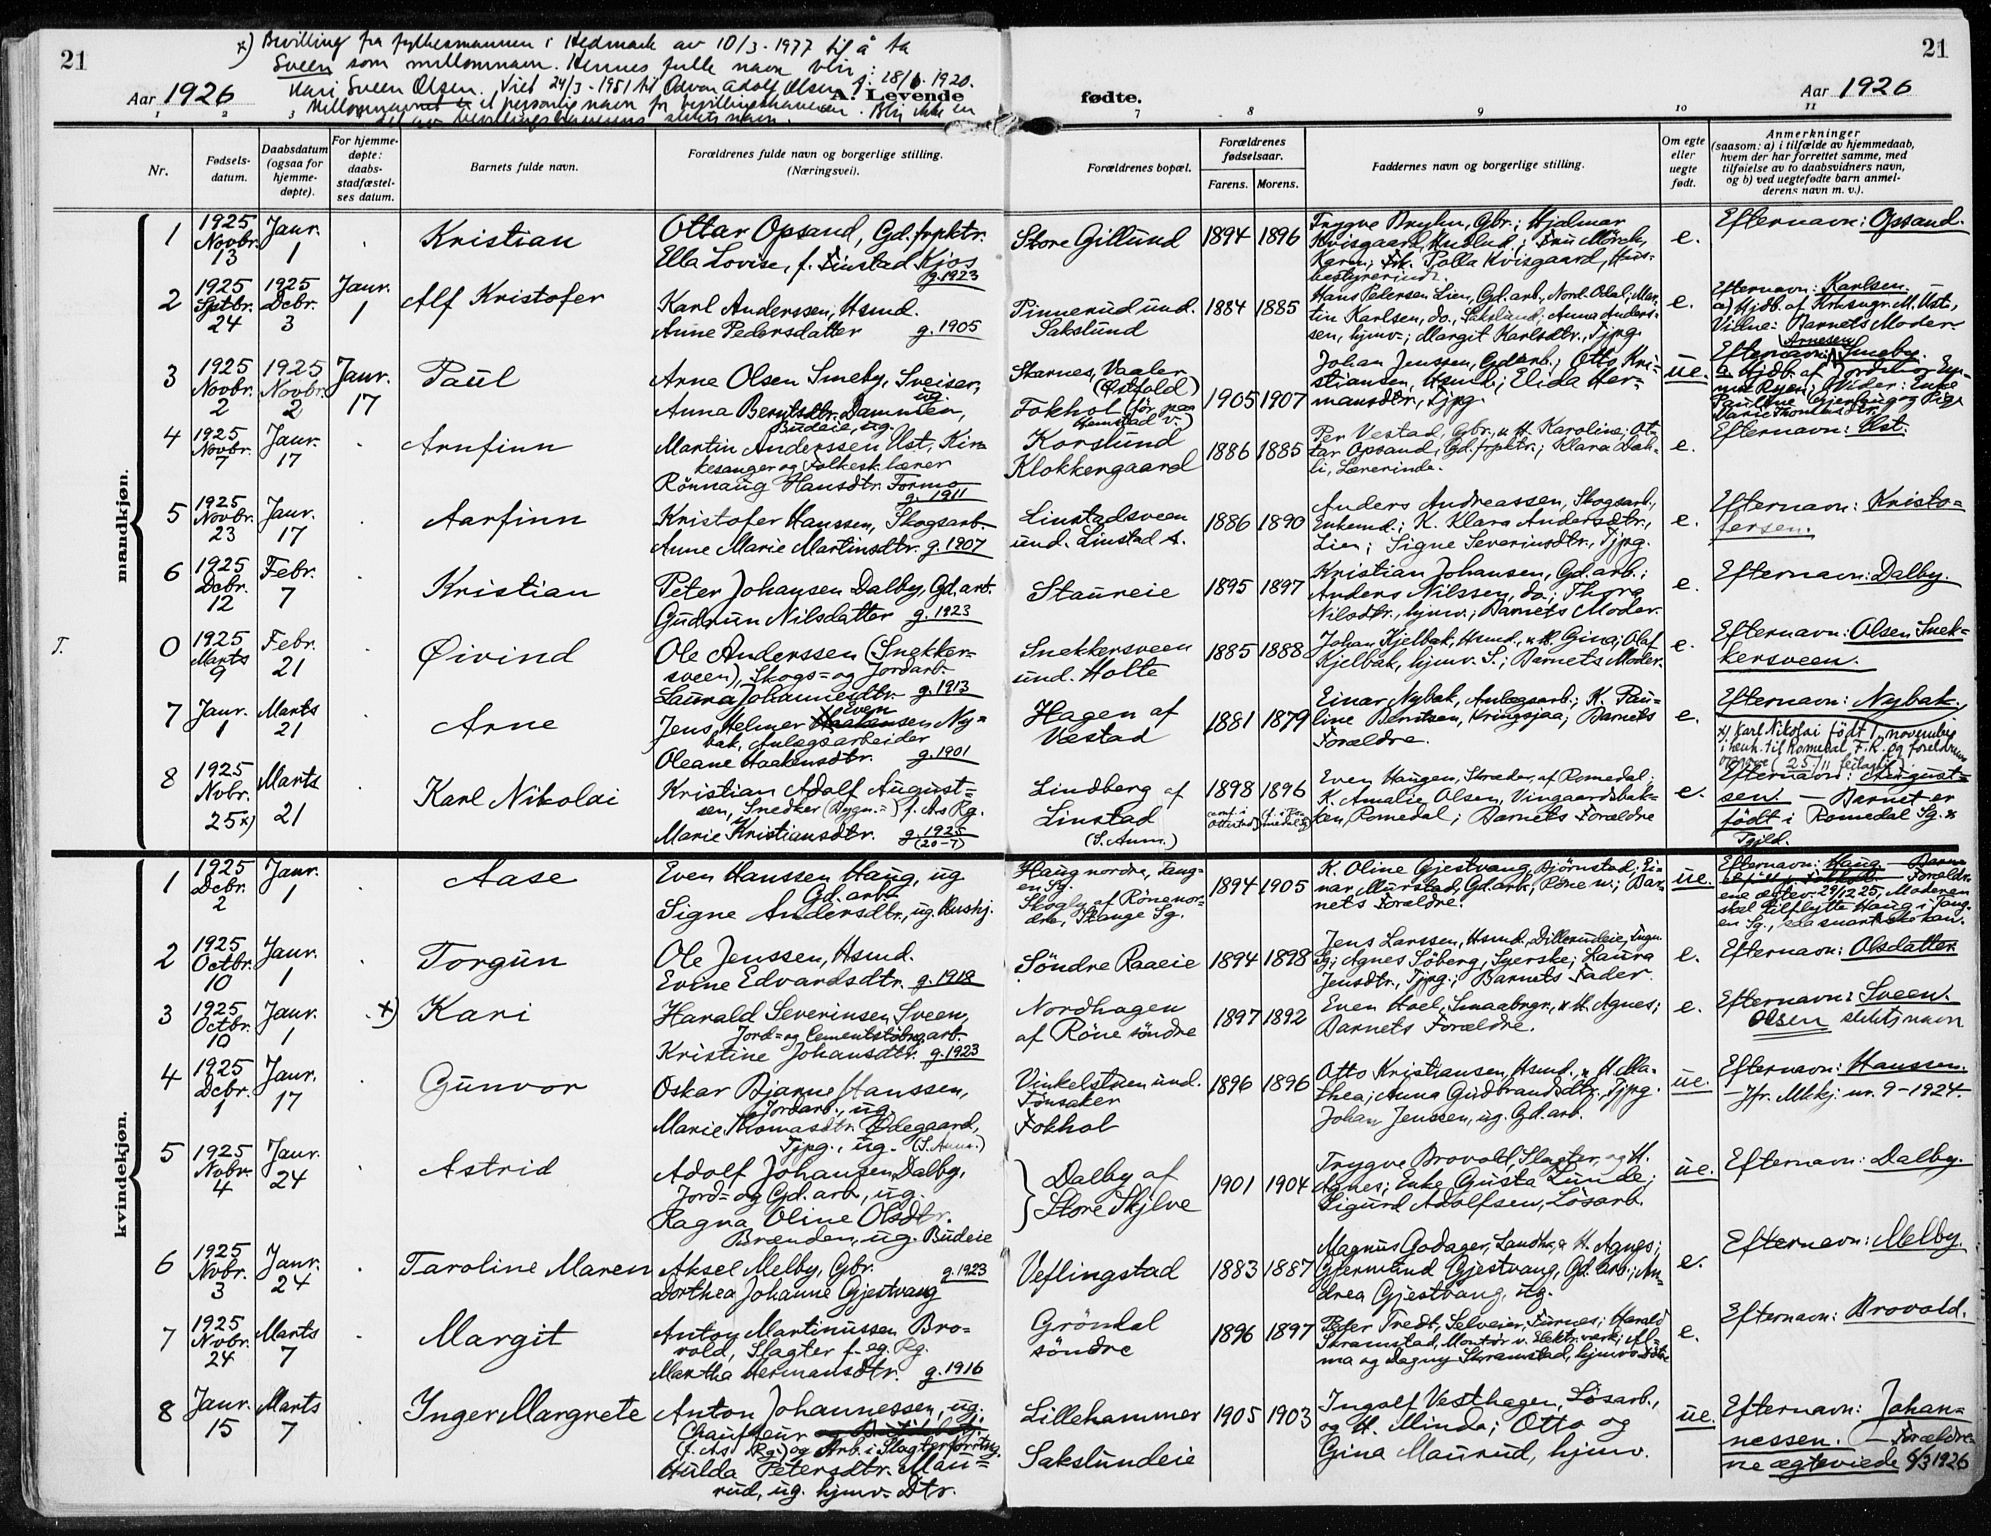 21
21
x) Bevilling fra fylkesmannen i Hedmark av 10/3-1977 til å ta
Sveen som mellomnavn. Hennes fulle navn blir:
Kari Sveen Olsen. Viet 24/3-1951 til Odvar Adolf Olsen f. 28/6 1920.
Mellomnavnet er et personlig navn for bevillingshaveren. Blir ikke en
del av bevillingshaverens slektsnavn.
Aar 1926
A. Levende
fødte.
Aar 1926
1 2 3 7 8 9 10 11
Nr.
Fødsels-
datum.
Daabsdatum
(ogsaa for
hjemme-
døpte).
For hjemme-
døpte:
daabs-
stadfæstel-
ses datum.
Barnets fulde navn.
Forældrenes fulde navn og borgerlige stilling.
(Næringsvei).
Forældrenes bopæl.
Forældrenes
fødselsaar.
Farens. Morens.
Faddernes navn og borgerlige stilling.
Om egte
eller
uegte
født.
Anmerkninger
(saasom: a) i tilfælde av hjemmedaab,
hvem der har forrettet samme, med
tilføielse av to daabsvidners navn,
og b) ved uegtefødte barn anmel-
derens navn m. v.).
mandkjøn.
1
1925
Novbr.
13
Janr.
1
Kristian
Ottar Opsand, Gd.frpktr.
Ella Lovise, f. Finstad Kjos
g.1923
Store Gillund
1894 1896
Trygve Bryhn, Gbr.; Hjalmar
Kvisgaard, Fru Mörch,
Karen; Frk. Polla Kvisgaard, Hus-
bestyrerinde.
e.
Efternavn: Opsand.
2
1925
Septbr.
24
1925
Dcbr.
3
Janr.
1
Alf Kristofer
Karl Anderssen, Hsmd.
Anne Pedersdatter g.1905
Pinnerud und.
Sakslund
1884 1885
Hans Pedersen Lien, Gd.arb., Nord. Odal; Mar-
tin Karlsen, do., Sakslund; Anna Anders-
sen, hjmv.; Margit Karlsdtr., Tjpg.
e.
Efternavn: Karlsen.
a) Hjdb. af Kirkesngr. M. Ust,
Vidne: Barnets Moder
3
1925
Novbr.
2
1925
Novbr.
2
Janr.
17
Paul
Arne Olsen Smeby, Sveiser,
ug.
Anna Berntsdtr. Dammen,
Budeie, ug.
Skarnes, Vaaler
(Østfold)
Fokhol (før paa
Hemstad v.)
1905 1907
Johan Jenssen, Gd.arb.; Otto Kri-
stiansen, Hsmd.; Elida Her-
mansdtr., Tjpg.
ue.
(Arnesen)
Efternavn: Smeby.
a. Hjdb. af Jordmor
Vidner: Enke
Pauline Gjerlaug og Pige
Marie Thomasdtr.
4
1925
Novbr.
7
Janr.
17
Arnfinn
Martin Anderssen Ust, Kir-
kesanger og Folkesk.lærer
Rönnaug Hansdtr. Tormo
g. 1911
Korslund
Klokkergaard
1886 1885
Per Vestad, Gbr., u. H. Karoline; Ot-
tar Opsand, Gd.frpktr.; Klara Dah-
li, Lærerinde.
e.
Efternavn: Ust.
5
1925
Novbr.
23
Janr.
17
Aarfinn
Kristofer Hanssen, Skogsarb.
Anne Marie Martinsdtr. g.1907
Linstadsveen
und. Linstad s.
1886 1890
Anders Andreassen, Skogsarb.,
Enkemd.; K. Klara Andersdtr.,
Lien; Signe Severinsdtr., Tjpg.
e.
Efternavn: Kristo-
fersen.
6
1925
Dcbr.
12
Febr.
7
Kristian
Peter Johansen Dalby, Gd.arb.
Gudrun Nilsdatter g.1923
Staureie
1895 1897
Kristian Johansen, Gd.arb.;
Anders Nilssen, do.; Thora
Nilsdtr., hjmv.; Barnets Moder.
e.
Efternavn: Dalby.
T.
0
1925
Marts
9
Febr.
21
Øivind
Ole Anderssen (Snekker-
sveen), Skogs- og Jordarb.
Laura Johannesdtr. g.1913
Snekkersveen
und. Holte
1885 1888
Johan Kjelbak, Hsmd., u. H. Gina; Olaf
Kjelbak, hjmv. S.; Barnets Moder.
e.
Efternavn: Olsen Snek-
kersveen.
7
Janr.
1
Marts
21
Arne
Even
Jens Helmer Haakensen Ny-
bak, Anlægsarbeider
Oleane Haakensdtr. g.1901
Hagen af
Væstad
1881 1879
Einar Nybak, Anlægsarb.; K. Pau-
line Berntsen, Kringsjaa; Barnets
Forældre.
e.
Efternavn: Nybak.
8
1925
Nvbr.
25 x)
Marts
21
Karl Nikolai
Kristian Adolf August-
sen, Snedker (Bygn.-) f. As Pg.
Marie Kristiansdtr. g.1925
(20-7)
Lindberg af
Linstad
(S. Anm.)
1898 1896
Even Haugen, Skræder, af Romedal;
K. Amalie Olsen, Vingaardsbak-
ken, Romedal; Barnets Forældre
e.
x) Karl Nikolai født 1. november
i henh. til Romedal F.R. og foreldrenes
oppgave (25/11 feilaktig).
Efternavn: August-
sen. — Barnet er
født i Romedal Sg. &
Pgjld.
kvindekjøn.
1
1925
Dcbr.
2
Janr.
1
Aase
Even Hanssen Haug, ug
Gd.arb.
Signe Andersdtr., ug. Hushj.
Haug nordre, Tang-
en Sg.
Skogly af Röne nor-
dre, Stange Sg.
1894 1905
K. Oline Gjestvang, Björnstad; Ei-
nar Murstad, Gd.arb., Röne n.; Bar-
nets Forældre.
ue.
Efternavn: Haug
Forældre-
ne egteviet 29/12 25, Moderen
skal tilflytte Haug i Tang-
en Sg., saa snart ske kan.
2
1925
Octbr.
10
Janr.
1
Torgun
Ole Jenssen, Hsmd.
Evine Edvardsdtr. g.1918
Söndre Raaeie
1894 1898
Jens Larssen, Hsmd., Dillerudeie, Tngn.
Sg; Agnes Söberg, Syerske; Laura
Jensdtr., Tjpg.; Barnets Fader.
e.
Efternavn: Olsdatter
3
1925
Octbr.
10
Janr.
1
x)
Kari
Harald Severinsen Sveen,
Jord- og Cementstöbng.arb.
Kristine Johansdtr. g.1923
Nordhagen
af Röne söndre
1897 1892
Even Hoel, Smaabrgr., u. H. Agnes;
Barnets Forældre.
e.
Efternavn: Sveen.
Olsen slektsnavn
4
1925
Dcbr.
1
Janr.
17
Gunvor
Oskar Bjarne Hanssen,
Jordarb., ug.
Marie Thomasdtr. Ødegaard,
Tjpg., ug. (S. Anm.)
Vinkelstuen und.
Tönsaker
Fokhol
1896 1896
Otto Kristiansen, Hsmd., u. H. Ma-
thea; Anna Gudbrandsdtr., Tjpg.
Johan Jenssen, ug. Gd.arb.
ue.
Efternavn: Hanssen.
— Jfr. Mkkj. nr. 9 - 1924.
5
1925
Nvbr.
4
Janr.
24
Astrid
Adolf Johansen Dalby,
Jord- og Gd.arb., ug.
Ragna Oline Olsdtr.
Brænden, ug. Budeie
Dalby af
Store Skjelve
1901 1904
Trygve Brovold, Slagter, og H.
Agnes; Enke Gusta Lunde;
Sigurd Adolfsen, Lösarb.
ue.
Efternavn: Dalby.
6
1925
Nvbr.
3
Janr.
24
Taroline Maren
Aksel Melby, Gbr. g.1923
Dorthea Johanne Gjestvang
Veflingstad
1883 1887
Magnus Godager, Landh., & H. Agnes;
Gjermund Gjestvang, Gd.arb.; An-
drea Gjestvang, ug.
e.
Efternavn: Melby.
7
1925
Nvbr.
24
Marts
7
Margit
Anton Martinussen Bro-
vold, Slagter f. eg. Rg.
Martha Hermansdtr. g.1916
Gröndal
söndre
1896 1897
Peter Tredt, Selveier, Furnes; Harald
Skramstad, Montör v. Elektr.værk; Al-
ma og Dagny Skramstad, hjmv. Döttre
e.
Efternavn: Brovold.
8
Janr.
15
Marts
7
Inger Margrete
Anton Johannessen, ug.
Chauffeur
(f. As Rg.) og Arb. i Slagterforrtng.
Hulda Petersdtr. Mau-
rud, ug. hjmv. Dtr.
Lillehammer
Sakslundeie
1905 1903
Ingolf Vesthagen, Lösarb.,
og H. Minda; Otto og
Gina Maurud, hjmv.
ue.
Efternavn: Johan-
nessen. — Forældre-
ne ægteviede 6/3 1926